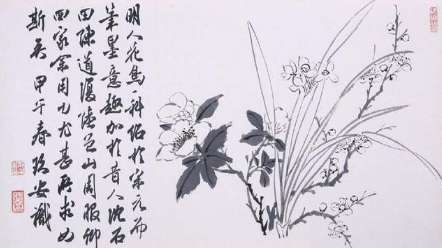 明人花鳥一科於宋元而
筆墨意趣加於昔人沈石
田陳道復陸包山周服卿
四家余用尤甚再求如
斯 甲午春 安識